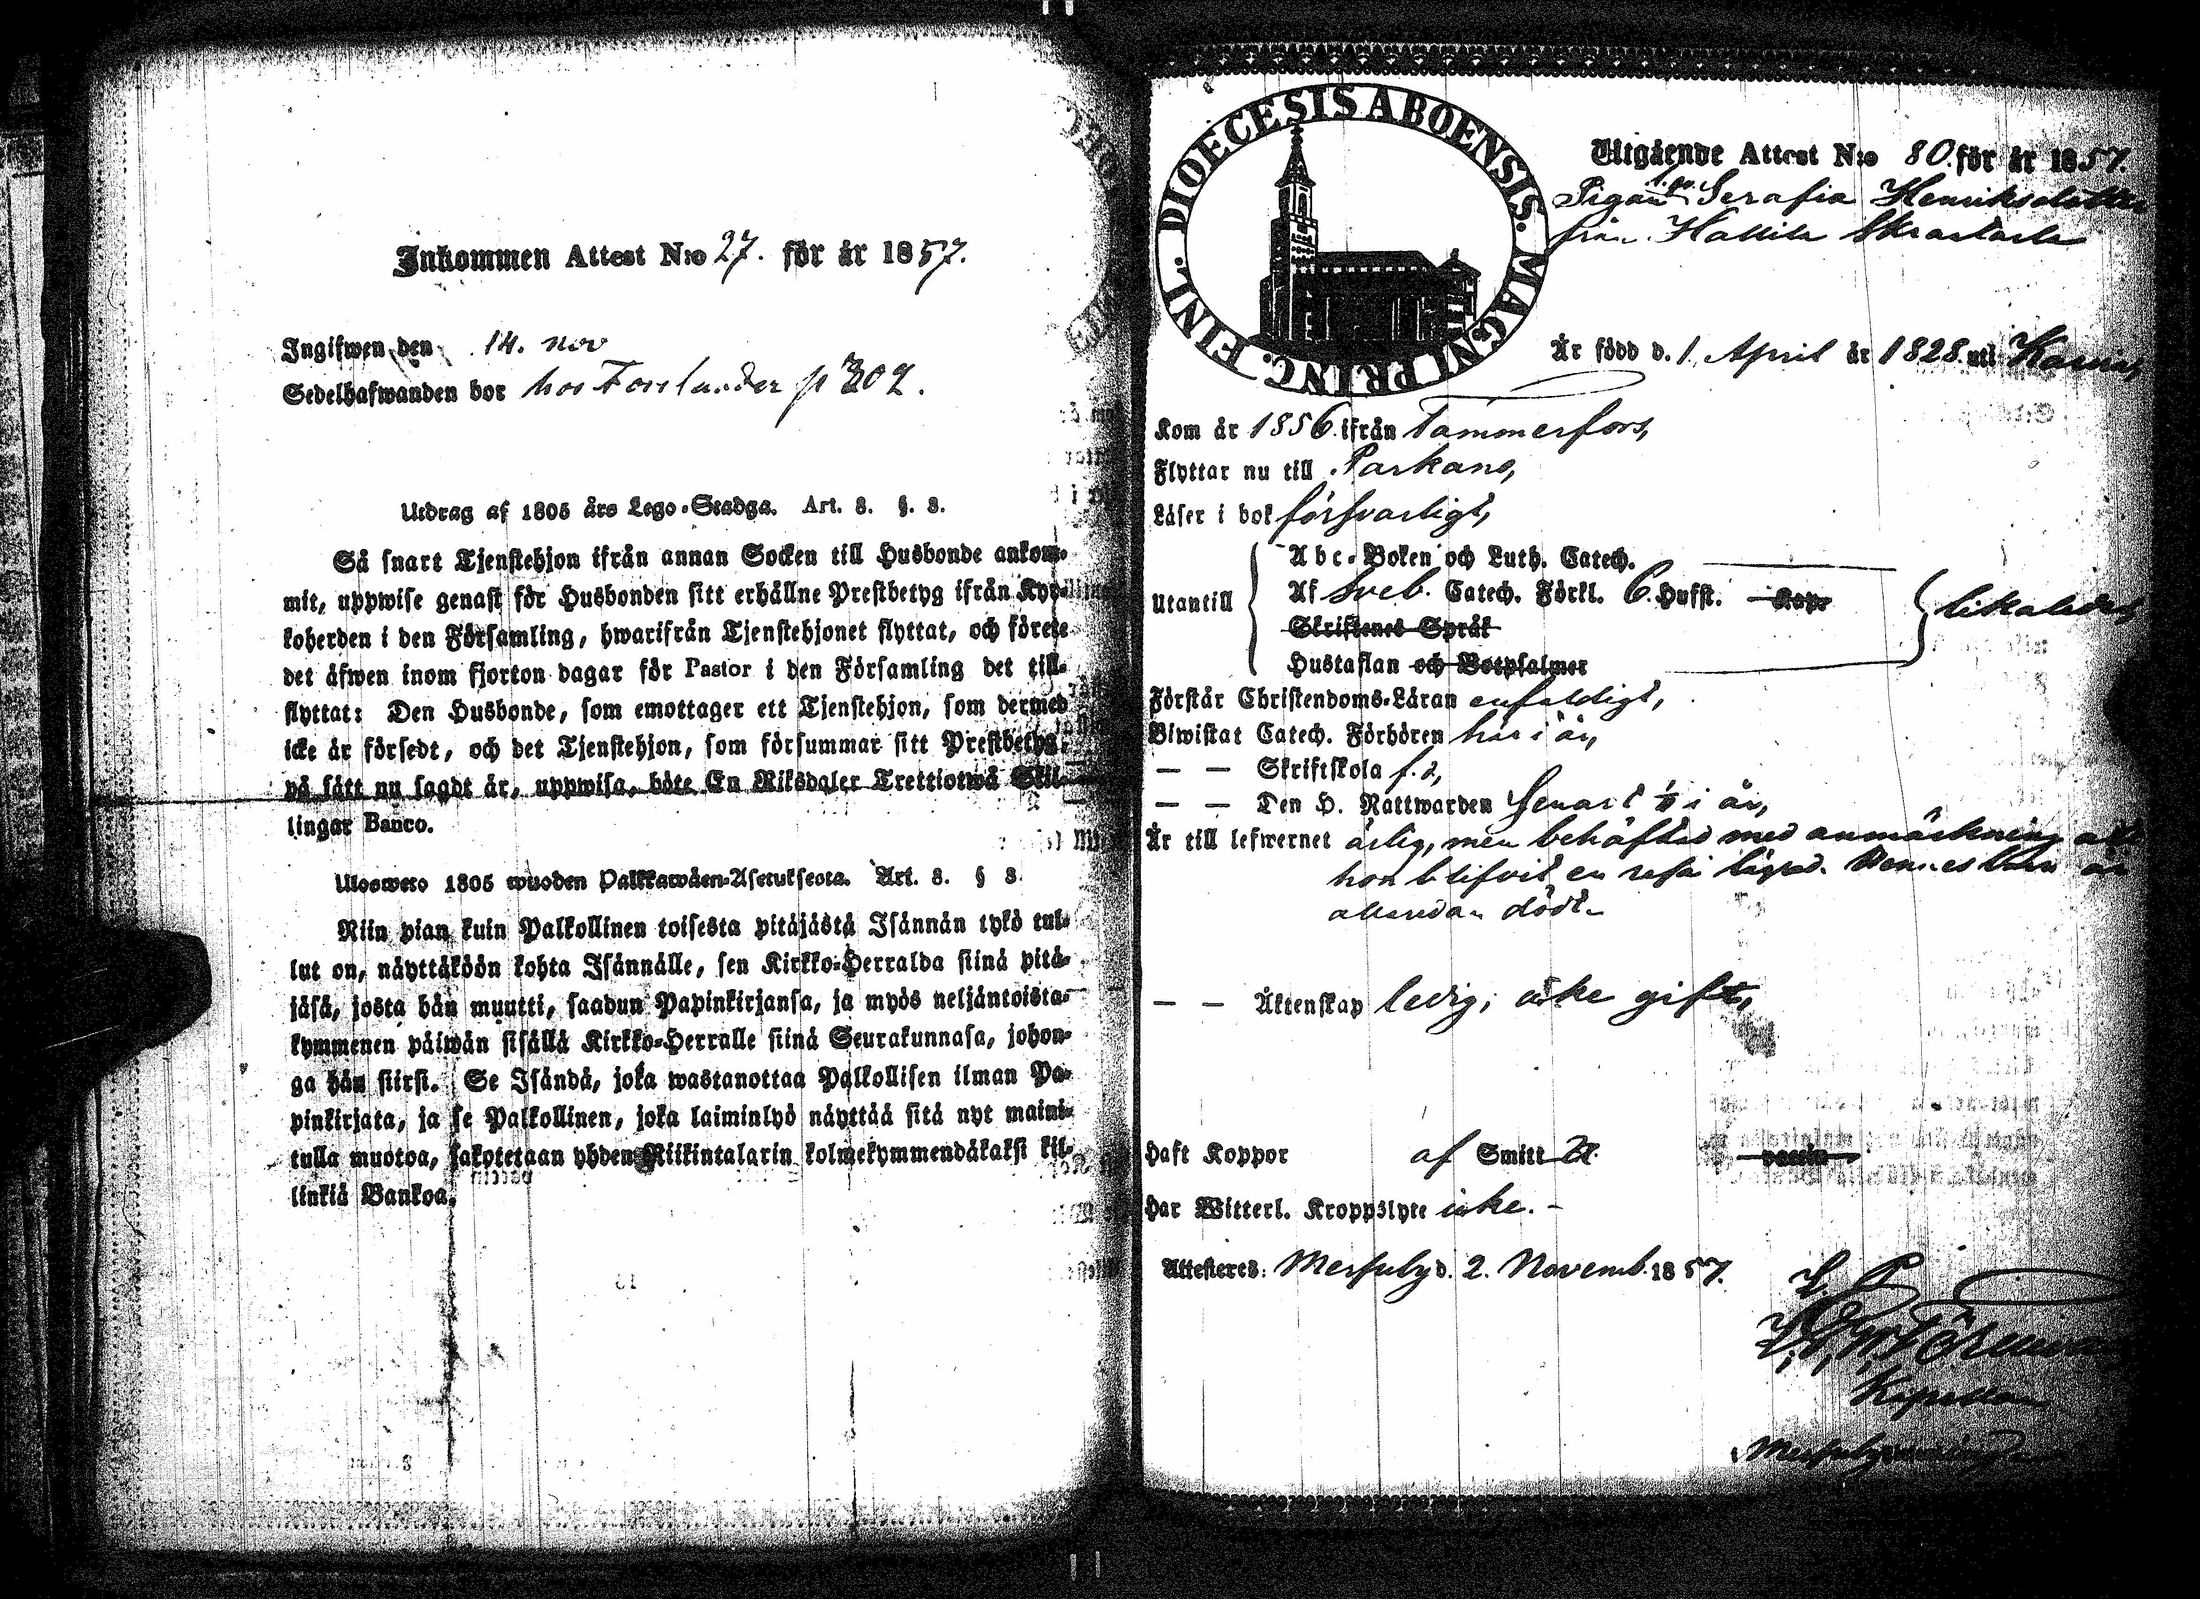 Inkommen Attest N:o 27. för år 1857.
Ingifwen den 14. nov
Sedelhafwanden bor hos Forslunder p 302.
Utdrag af 1805 års Lego-Stadga. Art. 8. §. 8.
Så snart Tjenstehjon ifrån annan Socken till Husbonde ankom-
mit, uppwise genast för Husbonden sitt erhållne Prestbetyg ifrån Kyr-
koherden i den Församling, hwarifrån Tjenstehjonet flyttat, och förete
det äfwen inom fjorton dagar för Pastor i den Församling det till-
flyttat: Den Husbonde, som emottager ett Tjenstehjon, som dermed
icke är försedt, och det Tjenstehjon, som försummar sitt Prestbetyg,
på sätt nu sagdt är, uppwisa, böte En Riksdaler Trettiotwå Skil-
lingar Banco.
Ulosweto 1805 wuoden Palkkawäen-Asetuksesta. Art. 8. § 8.
Niin pian kuin Palkollinen toisesta pitäjästä Isännän tykö tul-
lut on, näyttäköön kohta Isännälle, sen Kirkko-Herralda siinä pitä-
jäsä, josta hän muutti, saadun Papinkirjansa, ja myös neljäntoista-
kymmenen päiwän sisällä Kirkko-Herralle siinä Seurakunnasa, johon-
ga hän siirsi. Se Isändä, joka wastanottaa Palkollisen ilman Pa-
pinkirjata, ja se Palkollinen, joka laiminlyö näyttää sitä nyt maini-
tulla muotoa, sakotetaan yhden Riikintalarin kolmekymmendäkaksi kil-
linkiä Bankoa.
FINL. DIOECESIS ABOENSIS. MAGNI PRINC.
Utgående Attest N:o 80. för år 1857.
Pigan Serafia Henriksdotter
från Hallila
Är född d. 1. April år 1828. uti
Kom år 1856. ifrån Tammerfors,
Flyttar nu till Parkano,
Läser i bok försvarligt,
Utantill
Abc-Boken och Luth. Catech.
Af Sveb. Catech. Förkl. 6. Hufst. Kap.
Skriftenes Språk
Hustaflan och Botpsalmer
likaledes,
Förstår Christendoms-Läran enfaldigt,
Biwistat Catech. Förhören här i år,
— — Skriftskola
— — Den H. Nattwarden senast i år,
Är till lefwernet ärlig, men behäftad med anmärkning att
hon blifvit en resa lägrad. Hennes barn är
allaredan dödt.
— — Äktenskap ledig; icke gift,
Haft Koppor af Smitt vaccin
Har Witterl. Kroppslyte icke. -
Attesteres: Messuby d. 2. Novemb. 1857.
Kapellan